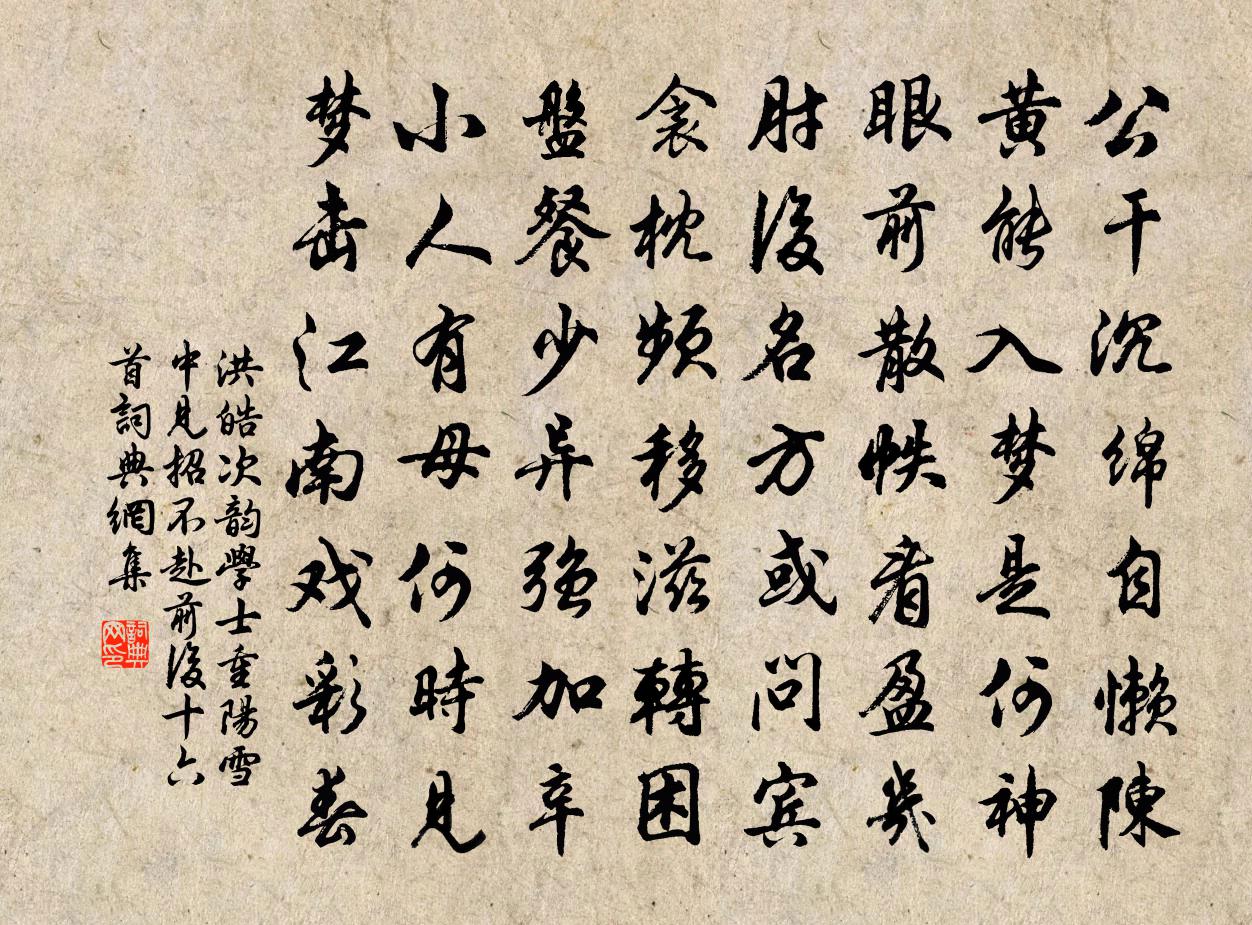 公干沉绵自懒陳
黄能入梦是何神
眼前散帙看盈幾
肘後名方或问宾
衾枕频移滋轉困
盤餐少异强加辛
小人有母何時见
梦击江南戏彩春
洪皓次韵學士重陽雪
中见招不赴前後十六
首詞典網集
詞典
网印